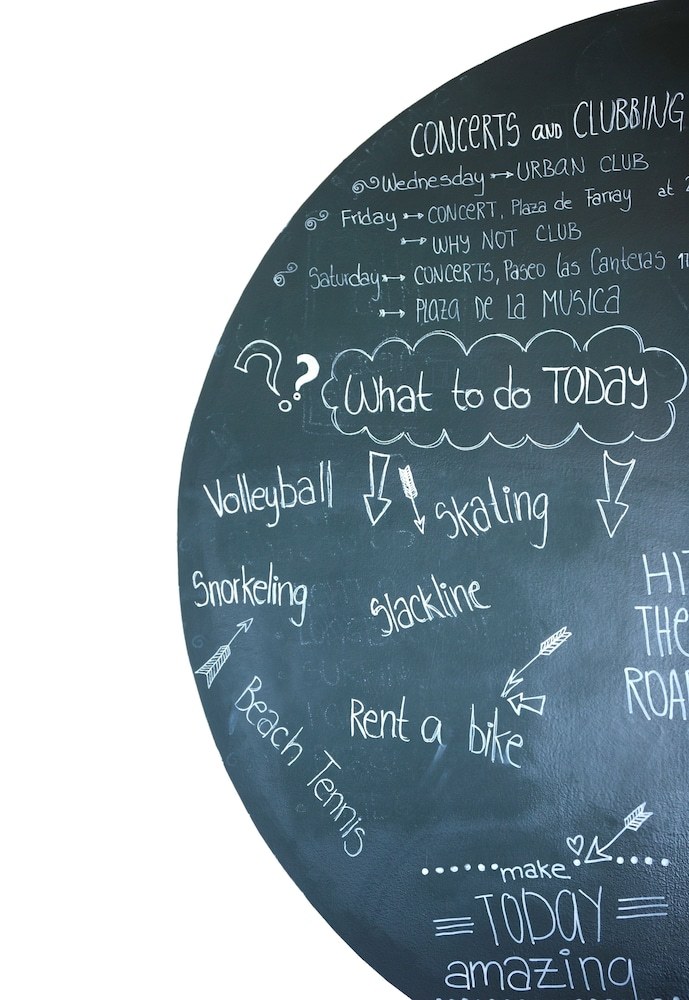 CONCERTS AND CLUBBING
Wednesday → URBAN CLUB
Friday → CONCERT, Plaza de Farray at 2
→ WHY NOT CLUB
Saturday → CONCERTS, Paseo las Canteras
→ PLAZA DE LA MUSICA
?? What to do TODAY
Volleyball
Skating
Snorkeling
Slackline
Rent a bike
Beach Tennis
HIT
THE
ROA
make
TODAY
amazing